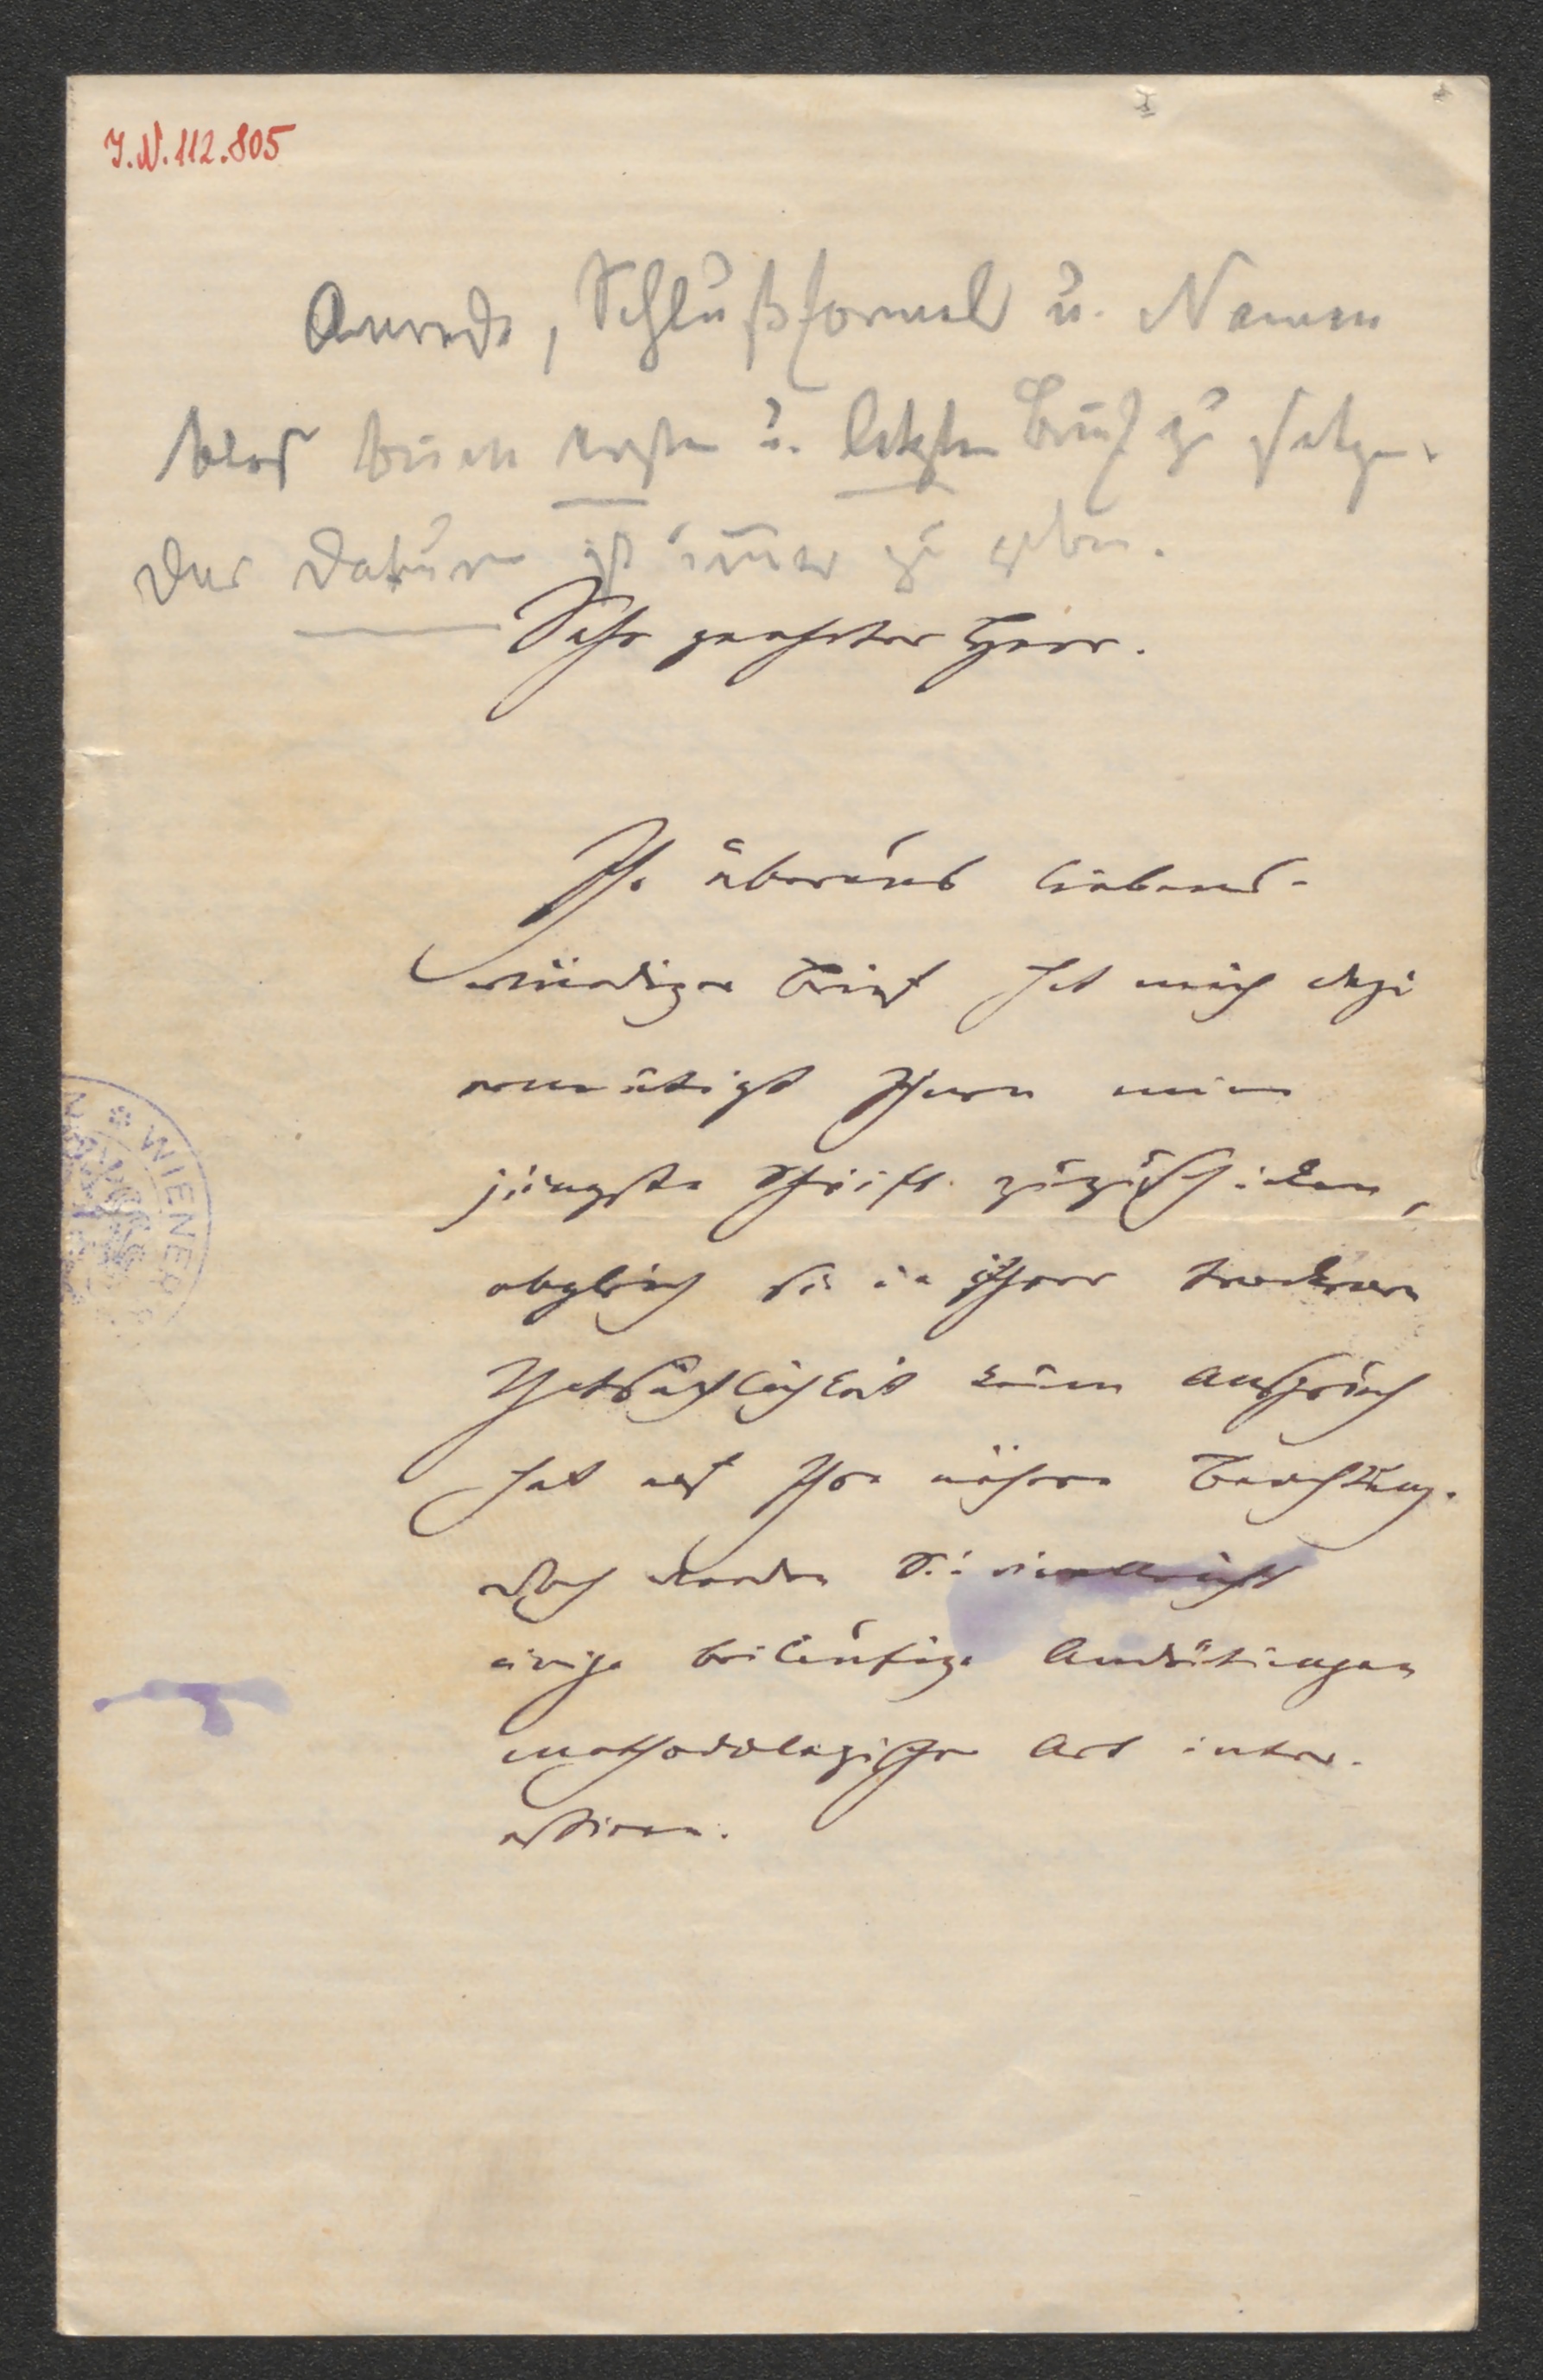 J.N. 112.805
Anrede, Schlußformel u. Namen
blos beim ersten u. letzten Brief zu setzen.
Das Datum ist im̅er zu geben.
Sehr geehrter Herr.
Ihr überaus liebens-
würdiger Brief hat mich dazu
ermutigt Ihnen meine
jüngste Schrift zuzuschicken,
obgleich sie in ihrer trockenen
Thatsächlichkeit keinen Anspruch
hat auf Ihre nähere Beachtung.
Doch werden Sie vielleicht
einige beiläufige Andeutungen
methodologischer Art inter-
essiren.
WIENER